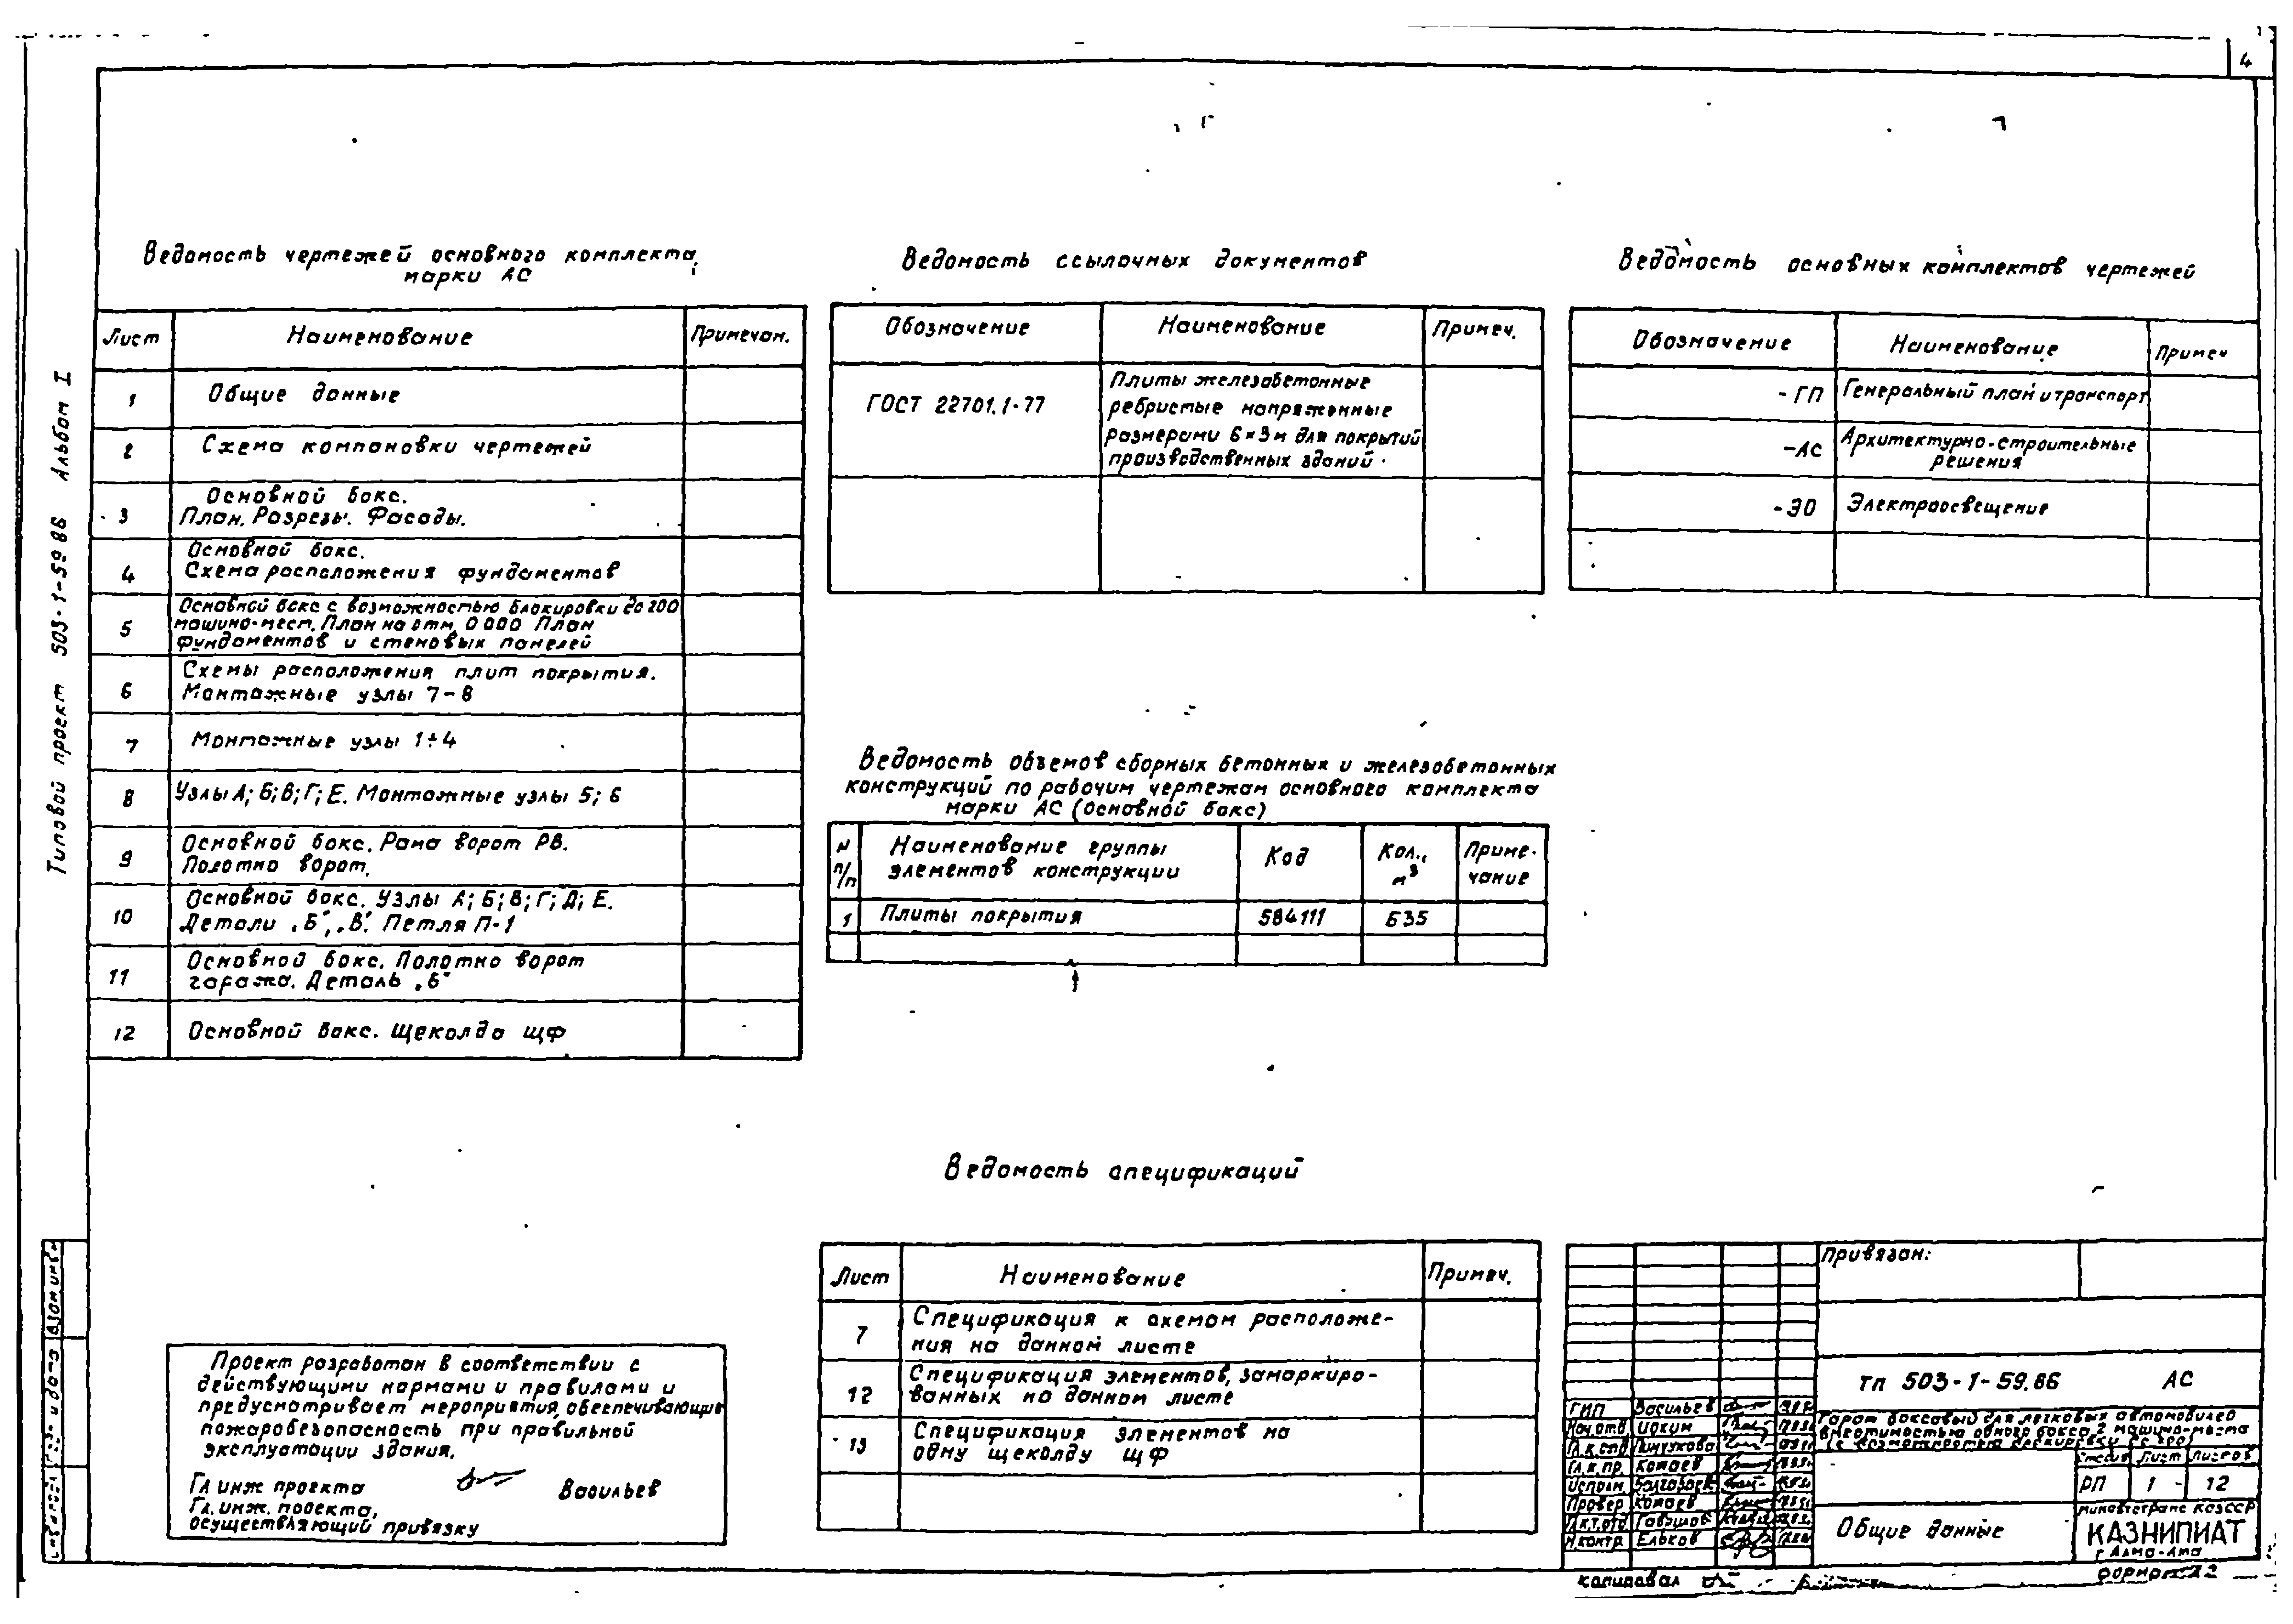 4
Типовой проект 503-1-59.86 Альбом I
Ведомость чертежей основного комплекта
марки АС
Лист Наименование Примечан.
1 Общие данные
2 Схема компановки чертежей
3 Основной бокс.
План. Разрезы. Фасады.
4 Основной бокс.
Схема расположения фундаментов
5 Основной бокс с возможностью блокировки до 200
машино-мест. План на отм. 0.000 План
фундаментов и стеновых панелей
6 Схемы расположения плит покрытия.
Монтажные узлы 7-8
7 Монтажные узлы 1÷4
8 Узлы А; Б; В; Г; Е. Монтажные узлы 5; 6
9 Основной бокс. Рама ворот РВ.
Полотно ворот.
10 Основной бокс. Узлы А; Б; В; Г; Д; Е.
Детали „Б", „В". Петля П-1
11 Основной бокс. Полотно ворот
гаража. Деталь „Б"
12 Основной бокс. Щеколда ЩФ
Ведомость ссылочных документов
Обозначение Наименование Примеч.
ГОСТ 22701.1-77 Плиты железобетонные
ребристые напряженные
размерами 6×3м для покрытий
производственных зданий.
Ведомость основных комплектов чертежей
Обозначение Наименование Примеч
-ГП Генеральный план и транспорт
-АС Архитектурно-строительные
решения
-ЭО Электроосвещение
Ведомость объемов сборных бетонных и железобетонных
конструкций по рабочим чертежам основного комплекта
марки АС (основной бокс)
N п/п Наименование группы элементов конструкции Код Кол., м³ Примечание
1 Плиты покрытия 584111 635
Ведомость спецификаций
Лист Наименование Примеч.
7 Спецификация к схемам расположе-
ния на данном листе
12 Спецификация элементов, замаркиро-
ванных на данном листе
13 Спецификация элементов на
одну щеколду ЩФ
Проект разработан в соответствии с
действующими нормами и правилами и
предусматривает мероприятия, обеспечивающие
пожаробезопасность при правильной
эксплуатации здания.
Гл инж проекта Васильев
Гл. инж. проекта,
осуществляющий привязку
Привязан:
ТП 503-1-59.86 АС
ГИП Васильев
Нач.отд. Иоким
Гл.к.отд
Гл.к.пр. Комаев
Исполн.
Провер Комаев
Гл.к.т.отд Гаврилов
Н.контр. Ельков
Гараж боксовый для легковых автомобилей
вместимостью одного бокса 2 машино-места
Стадия Лист Листов
РП 1 - 12
Общие данные
Минавтотранс КазССР
КАЗНИПИАТ
г Алма-Ата
Копировал
формат 22